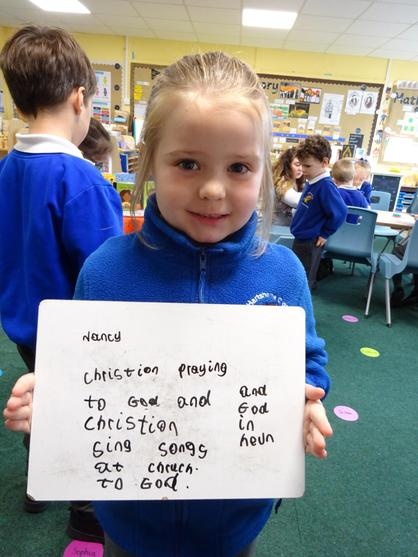 Nancy
christion praying
to God and
christion
sing songs
at chruch.
to God.
and
God
in
hevn
Sophia